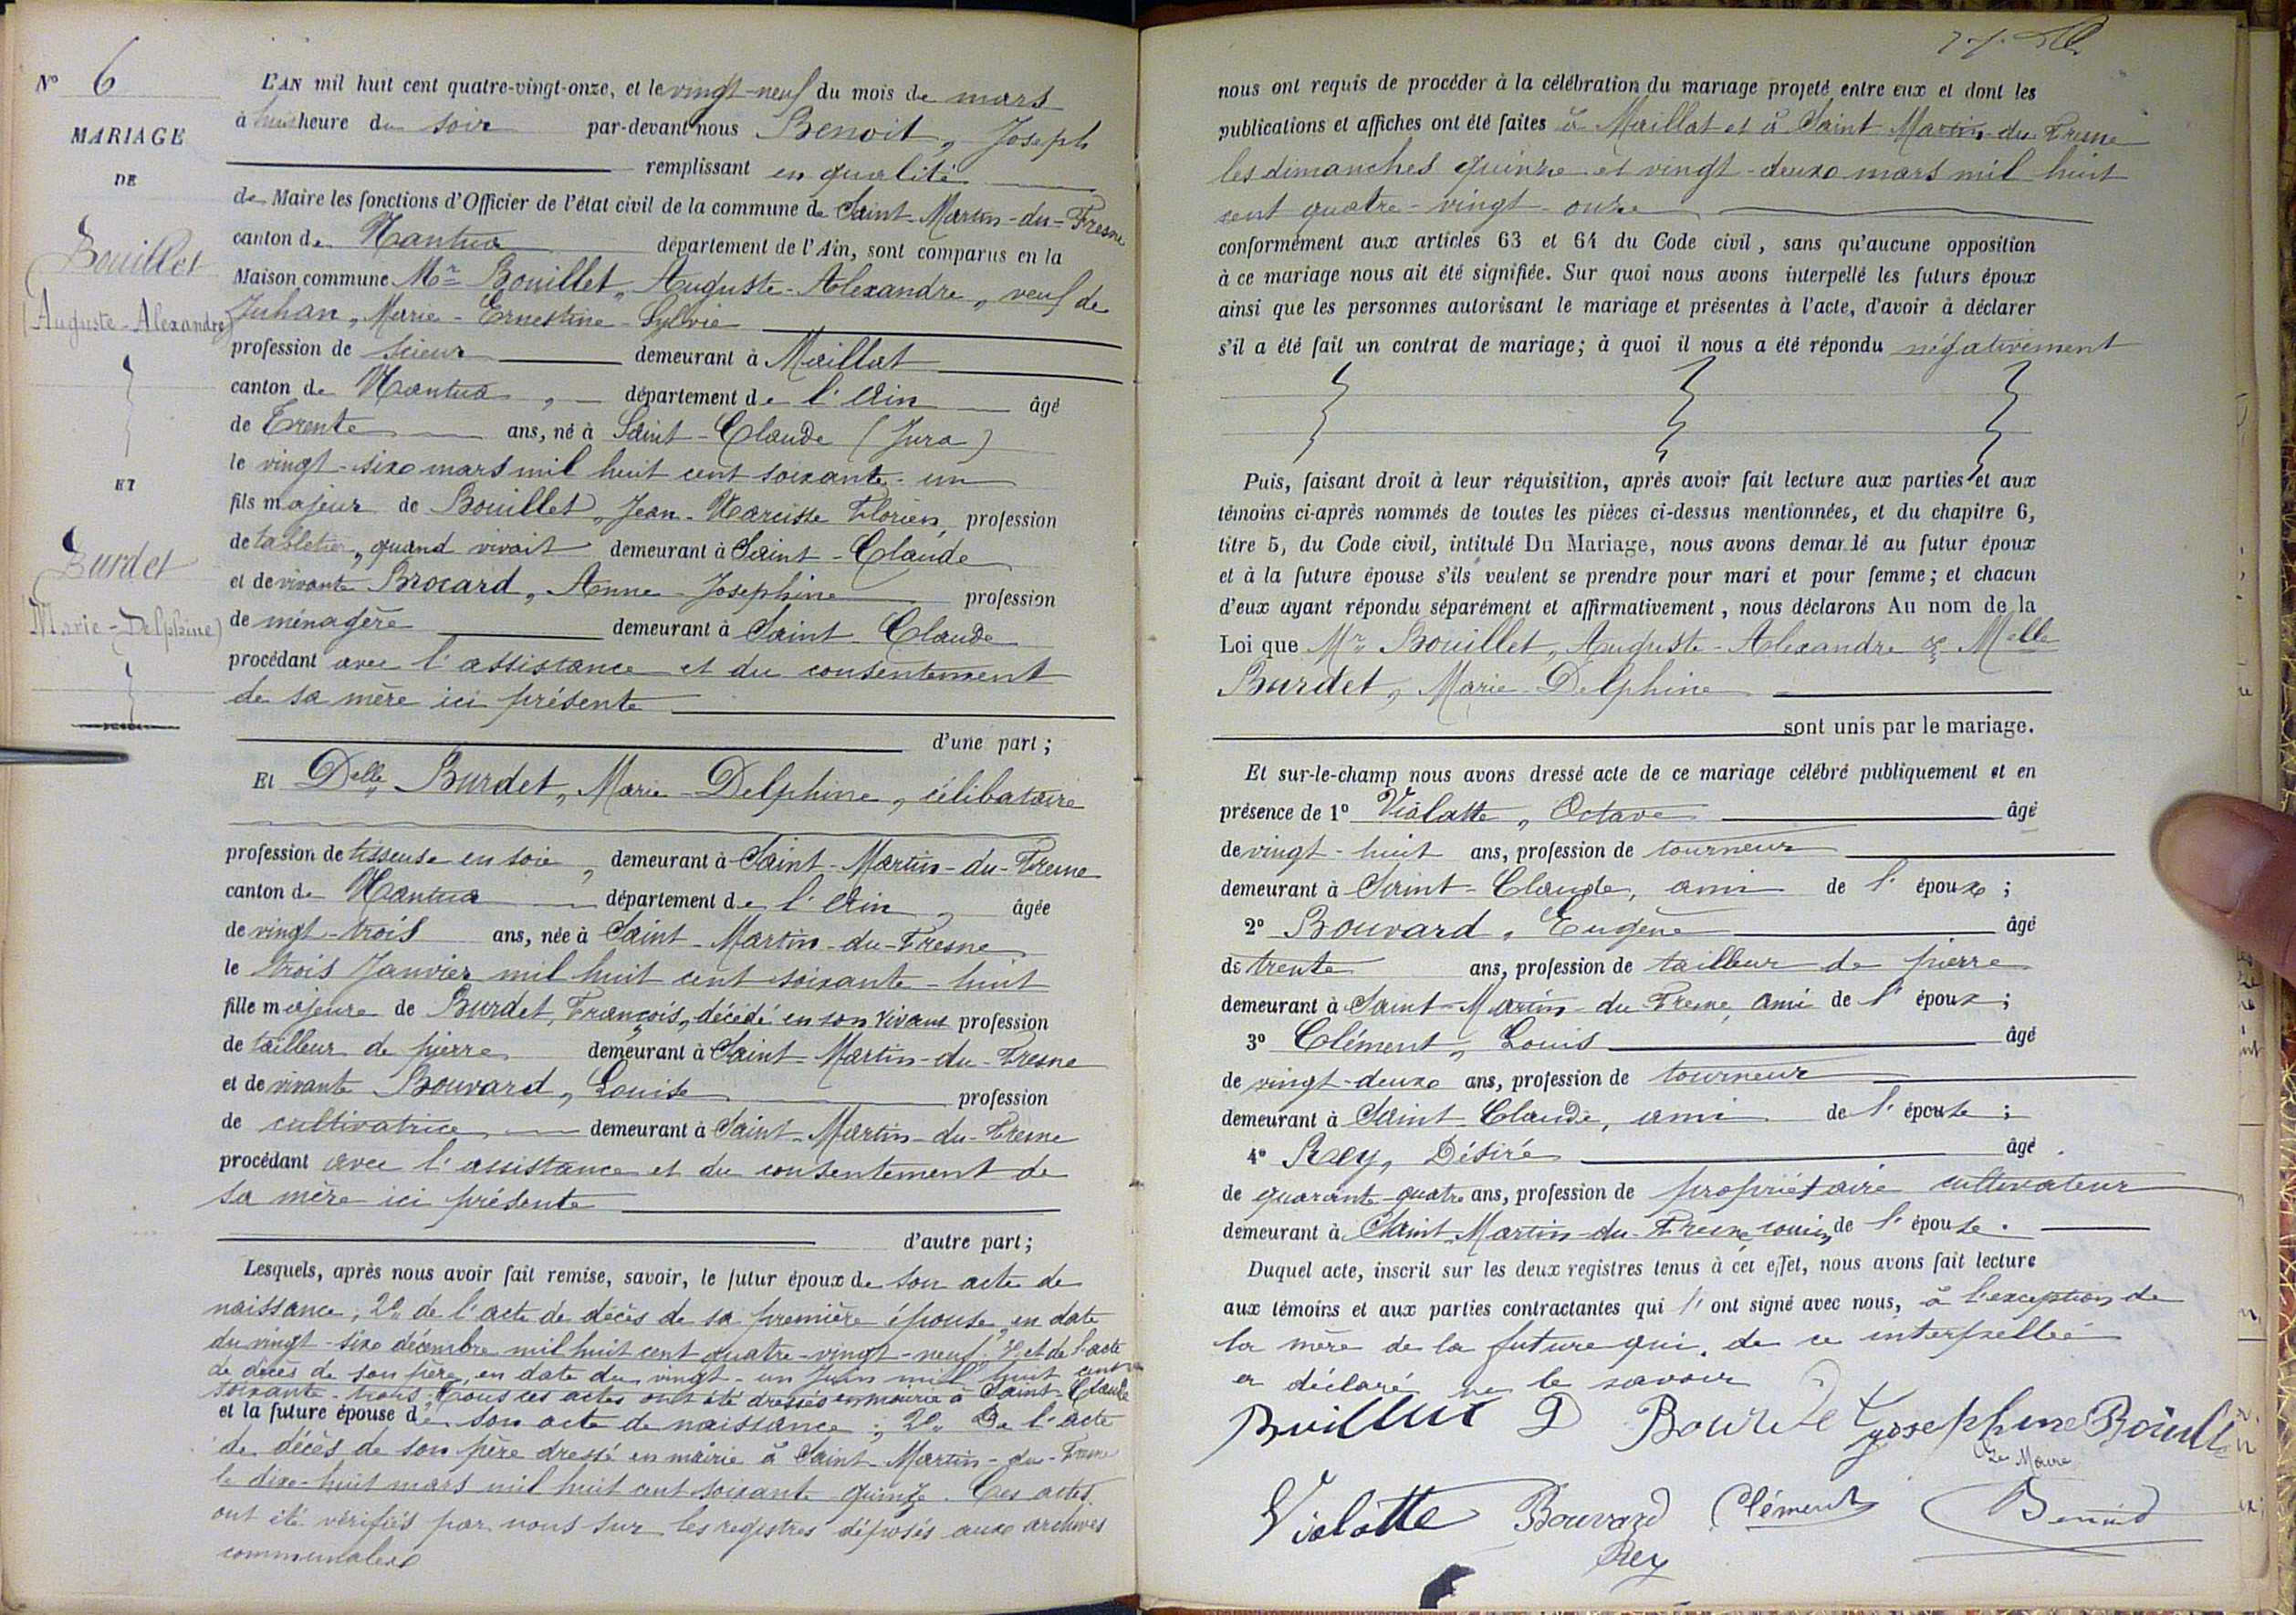 N° 6
MARIAGE
DE
Bouillet
(Auguste-Alexandre)
ET
Burdet
Marie-Delphine)
L'AN mil huit cent quatre-vingt-onze, et le vingt-neuf du mois de mars
à huit heure du soir par-devant nous Benoit, Joseph
remplissant en qualité
de Maire les fonctions d'Officier de l'état civil de la commune de Saint-Martin-du-Fresne
canton de Nantua département de l'Ain, sont comparus en la
Maison commune Mr Bouillet, Auguste-Alexandre, veuf de
Juhan, Marie-Ernestine-Sylvie
profession de scieur demeurant à Maillat
canton de Nantua, département de l'Ain âgé
de Trente ans, né à Saint-Claude (Jura)
le vingt-six mars mil huit cent soixante-un
fils majeur de Bouillet, Jean-Narcisse Florien, profession
de tabletier, quand vivait demeurant à Saint-Claude
et de vivante Brocard, Anne-Josephine profession
de ménagère demeurant à Saint-Claude
procédant avec l'assistance et du consentement
de sa mère ici présente
d'une part;
Et Delle Burdet, Marie-Delphine, célibataire
profession de tisseuse en soie, demeurant à Saint-Martin-du-Fresne
canton de Nantua département de l'Ain, âgée
de vingt-trois ans, née à Saint-Martin-du-Fresne
le trois Janvier mil huit cent soixante-huit
fille majeure de Burdet, François, décédé en son vivant profession
de tailleur de pierre demeurant à Saint-Martin-du-Fresne
et de vivante Bouvard, Louise profession
de cultivatrice demeurant à Saint-Martin-du-Fresne
procédant avec l'assistance et du consentement de
sa mère ici présente
d'autre part;
Lesquels, après nous avoir fait remise, savoir, le futur époux de son acte de
naissance; 2° de l'acte de décès de sa première épouse, en date
du vingt-six décembre mil huit cent quatre-vingt-neuf; 3° et de l'acte
de décès de son père, en date du vingt-un Juin mil huit cent
soixante-trois; tous ces actes ont été dressés en mairie à Saint-Claude
et la future épouse de son acte de naissance; 2° De l'acte
de décès de son père dressé en mairie à Saint-Martin-du-Fresne
le dix-huit mars mil huit cent soixante-quinze. Ces actes
ont été vérifiés par nous sur les registres déposés aux archives
communales
nous ont requis de procéder à la célébration du mariage projeté entre eux et dont les
publications et affiches ont été faites à Maillat et à Saint-Martin-du-Fresne
les dimanches quinze et vingt-deux mars mil huit
cent quatre-vingt-onze
conformément aux articles 63 et 64 du Code civil, sans qu'aucune opposition
à ce mariage nous ait été signifiée. Sur quoi nous avons interpellé les futurs époux
ainsi que les personnes autorisant le mariage et présentes à l'acte, d'avoir à déclarer
s'il a été fait un contrat de mariage; à quoi il nous a été répondu négativement
Puis, faisant droit à leur réquisition, après avoir fait lecture aux parties et aux
témoins ci-après nommés de toutes les pièces ci-dessus mentionnées, et du chapitre 6,
titre 5, du Code civil, intitulé Du Mariage, nous avons demandé au futur époux
et à la future épouse s'ils veulent se prendre pour mari et pour femme; et chacun
d'eux ayant répondu séparément et affirmativement, nous déclarons Au nom de la
Loi que Mr Bouillet, Auguste-Alexandre & Melle
Burdet, Marie-Delphine
sont unis par le mariage.
Et sur-le-champ nous avons dressé acte de ce mariage célébré publiquement et en
présence de 1° Violatte, Octave âgé
de vingt-huit ans, profession de tourneur
demeurant à Saint-Claude, ami de l'époux;
2° Bouvard, Eugène âgé
de trente ans, profession de tailleur de pierre
demeurant à Saint-Martin-du-Fresne, ami de l'époux;
3° Clément, Louis âgé
de vingt-deux ans, profession de tourneur
demeurant à Saint-Claude, ami de l'épouse;
4° Rey, Désiré âgé
de quarante-quatre ans, profession de propriétaire cultivateur
demeurant à Saint-Martin-du-Fresne, cousin de l'épouse.
Duquel acte, inscrit sur les deux registres tenus à cet effet, nous avons fait lecture
aux témoins et aux parties contractantes qui l'ont signé avec nous, à l'exception de
la mère de la future qui, de ce interpellée
a déclaré ne le savoir
Bouillet D Bourdet Josephine Bouillet
Le Maire
Violatte Bouvard Clément Benoit
Rey